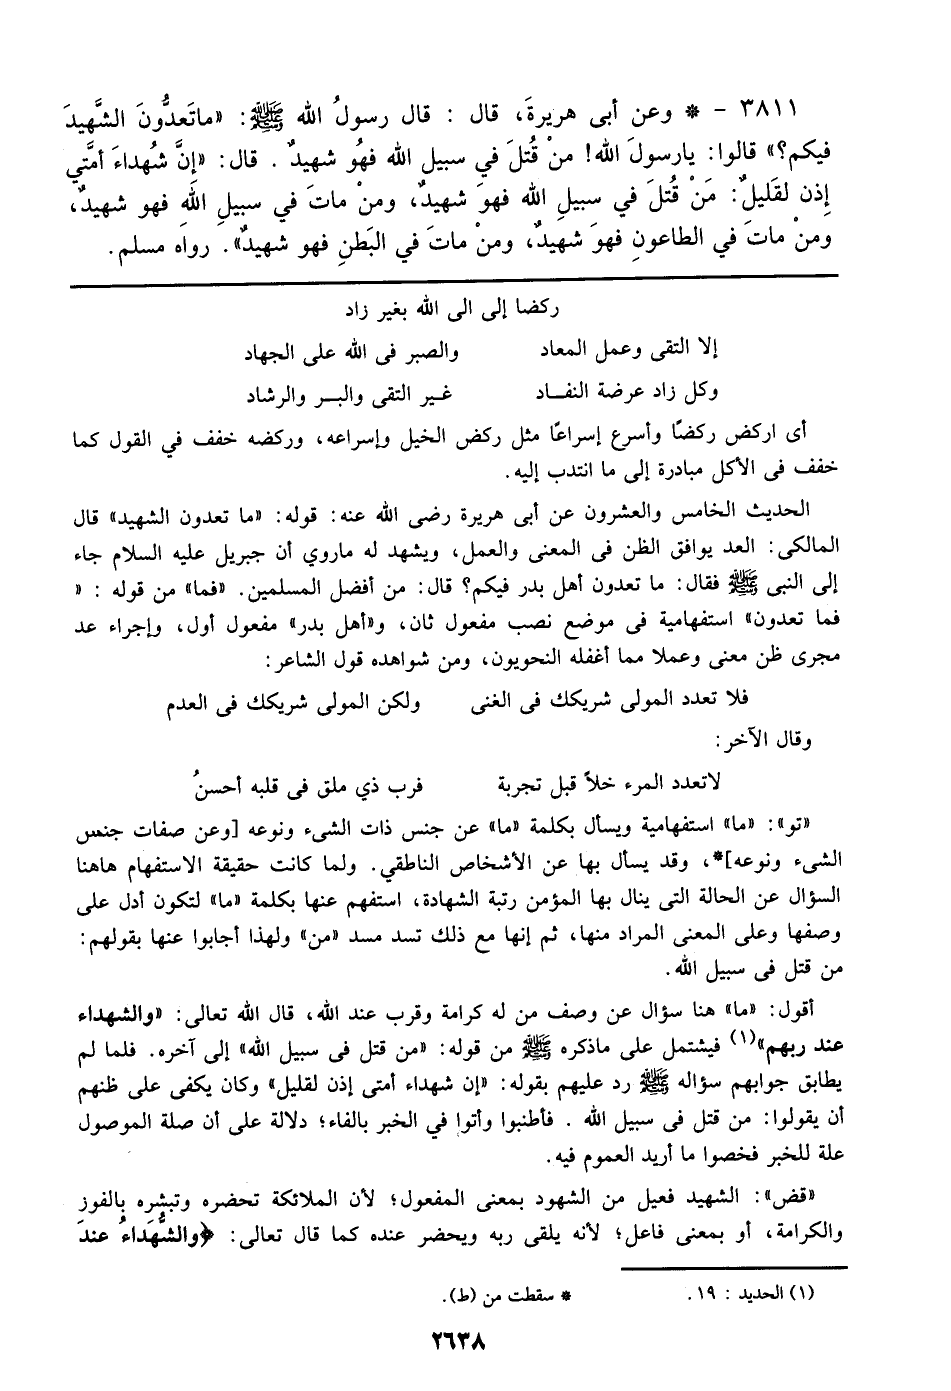 ٣٨١١ - * وعن أبى هريرةَ، قال : قال رسولُ الله ﷺ: «ماتَعدُّونَ الشَّهيدَ
فيكم؟» قالوا: يارسولَ الله! منْ قُتلَ في سبيل الله فهُو شهيدٌ . قال: «إنَّ شُهداءَ أمَّتي
إذن لقَليلٌ: مَنْ قُتلَ في سبيلِ الله فهوَ شهيدٌ، ومنْ ماتَ في سبيلِ اللهِ فهو شهيدٌ،
ومنْ ماتَ في الطاعونِ فهوَ شهيدٌ، ومنْ ماتَ في البَطنِ فهو شهيدٌ». رواه مسلم.
ركضا إلى الى الله بغير زاد
إلا التقى وعمل المعاد والصبر فى الله على الجهاد
وكل زاد عرضة النفـاد غـير التقى والبـر والرشاد
أى اركض ركضًا وأسرع إسراعًا مثل ركض الخيل وإسراعه، وركضه خفف في القول كما
خفف فى الأكل مبادرة إلى ما انتدب إليه.
الحديث الخامس والعشرون عن أبى هريرة رضى الله عنه: قوله: «ما تعدون الشهيد» قال
المالكى: العد يوافق الظن فى المعنى والعمل، ويشهد له ماروي أن جبريل عليه السلام جاء
إلى النبى ﷺ فقال: ما تعدون أهل بدر فيكم؟ قال: من أفضل المسلمين. «فما» من قوله : «
فما تعدون» استفهامية فى موضع نصب مفعول ثان، و«أهل بدر» مفعول أول، وإجراء عد
مجرى ظن معنى وعملا مما أغفله النحويون، ومن شواهده قول الشاعر:
فلا تعدد المولى شريكك فى الغنى ولكن المولى شريكك فى العدم
وقال الآخر:
لاتعدد المرء خلاً قبل تجربة فرب ذي ملق فى قلبه أحسنُ
«تو»: «ما» استفهامية ويسأل بكلمة «ما» عن جنس ذات الشىء ونوعه [وعن صفات جنس
الشىء ونوعه]*، وقد يسأل بها عن الأشخاص الناطقي. ولما كانت حقيقة الاستفهام هاهنا
السؤال عن الحالة التى ينال بها المؤمن رتبة الشهادة، استفهم عنها بكلمة «ما» لتكون أدل على
وصفها وعلى المعنى المراد منها، ثم إنها مع ذلك تسد مسد «من» ولهذا أجابوا عنها بقولهم:
من قتل فى سبيل الله.
أقول: «ما» هنا سؤال عن وصف من له كرامة وقرب عند الله، قال الله تعالى: «والشهداء
عند ربهم»(١) فيشتمل على ماذكره ﷺ من قوله: «من قتل فى سبيل الله» إلى آخره. فلما لم
يطابق جوابهم سؤاله ﷺ رد عليهم بقوله: «إن شهداء أمتى إذن لقليل» وكان يكفى على ظنهم
أن يقولوا: من قتل فى سبيل الله . فأطنبوا وأتوا في الخبر بالفاء؛ دلالة على أن صلة الموصول
علة للخبر فخصوا ما أريد العموم فيه.
«قض»: الشهيد فعيل من الشهود بمعنى المفعول؛ لأن الملائكة تحضره وتبشره بالفوز
والكرامة، أو بمعنى فاعل؛ لأنه يلقى ربه ويحضر عنده كما قال تعالى: ﴿والشُّهَداءُ عندَ
(١) الحديد : ١٩. * سقطت من (ط).
٢٦٣٨